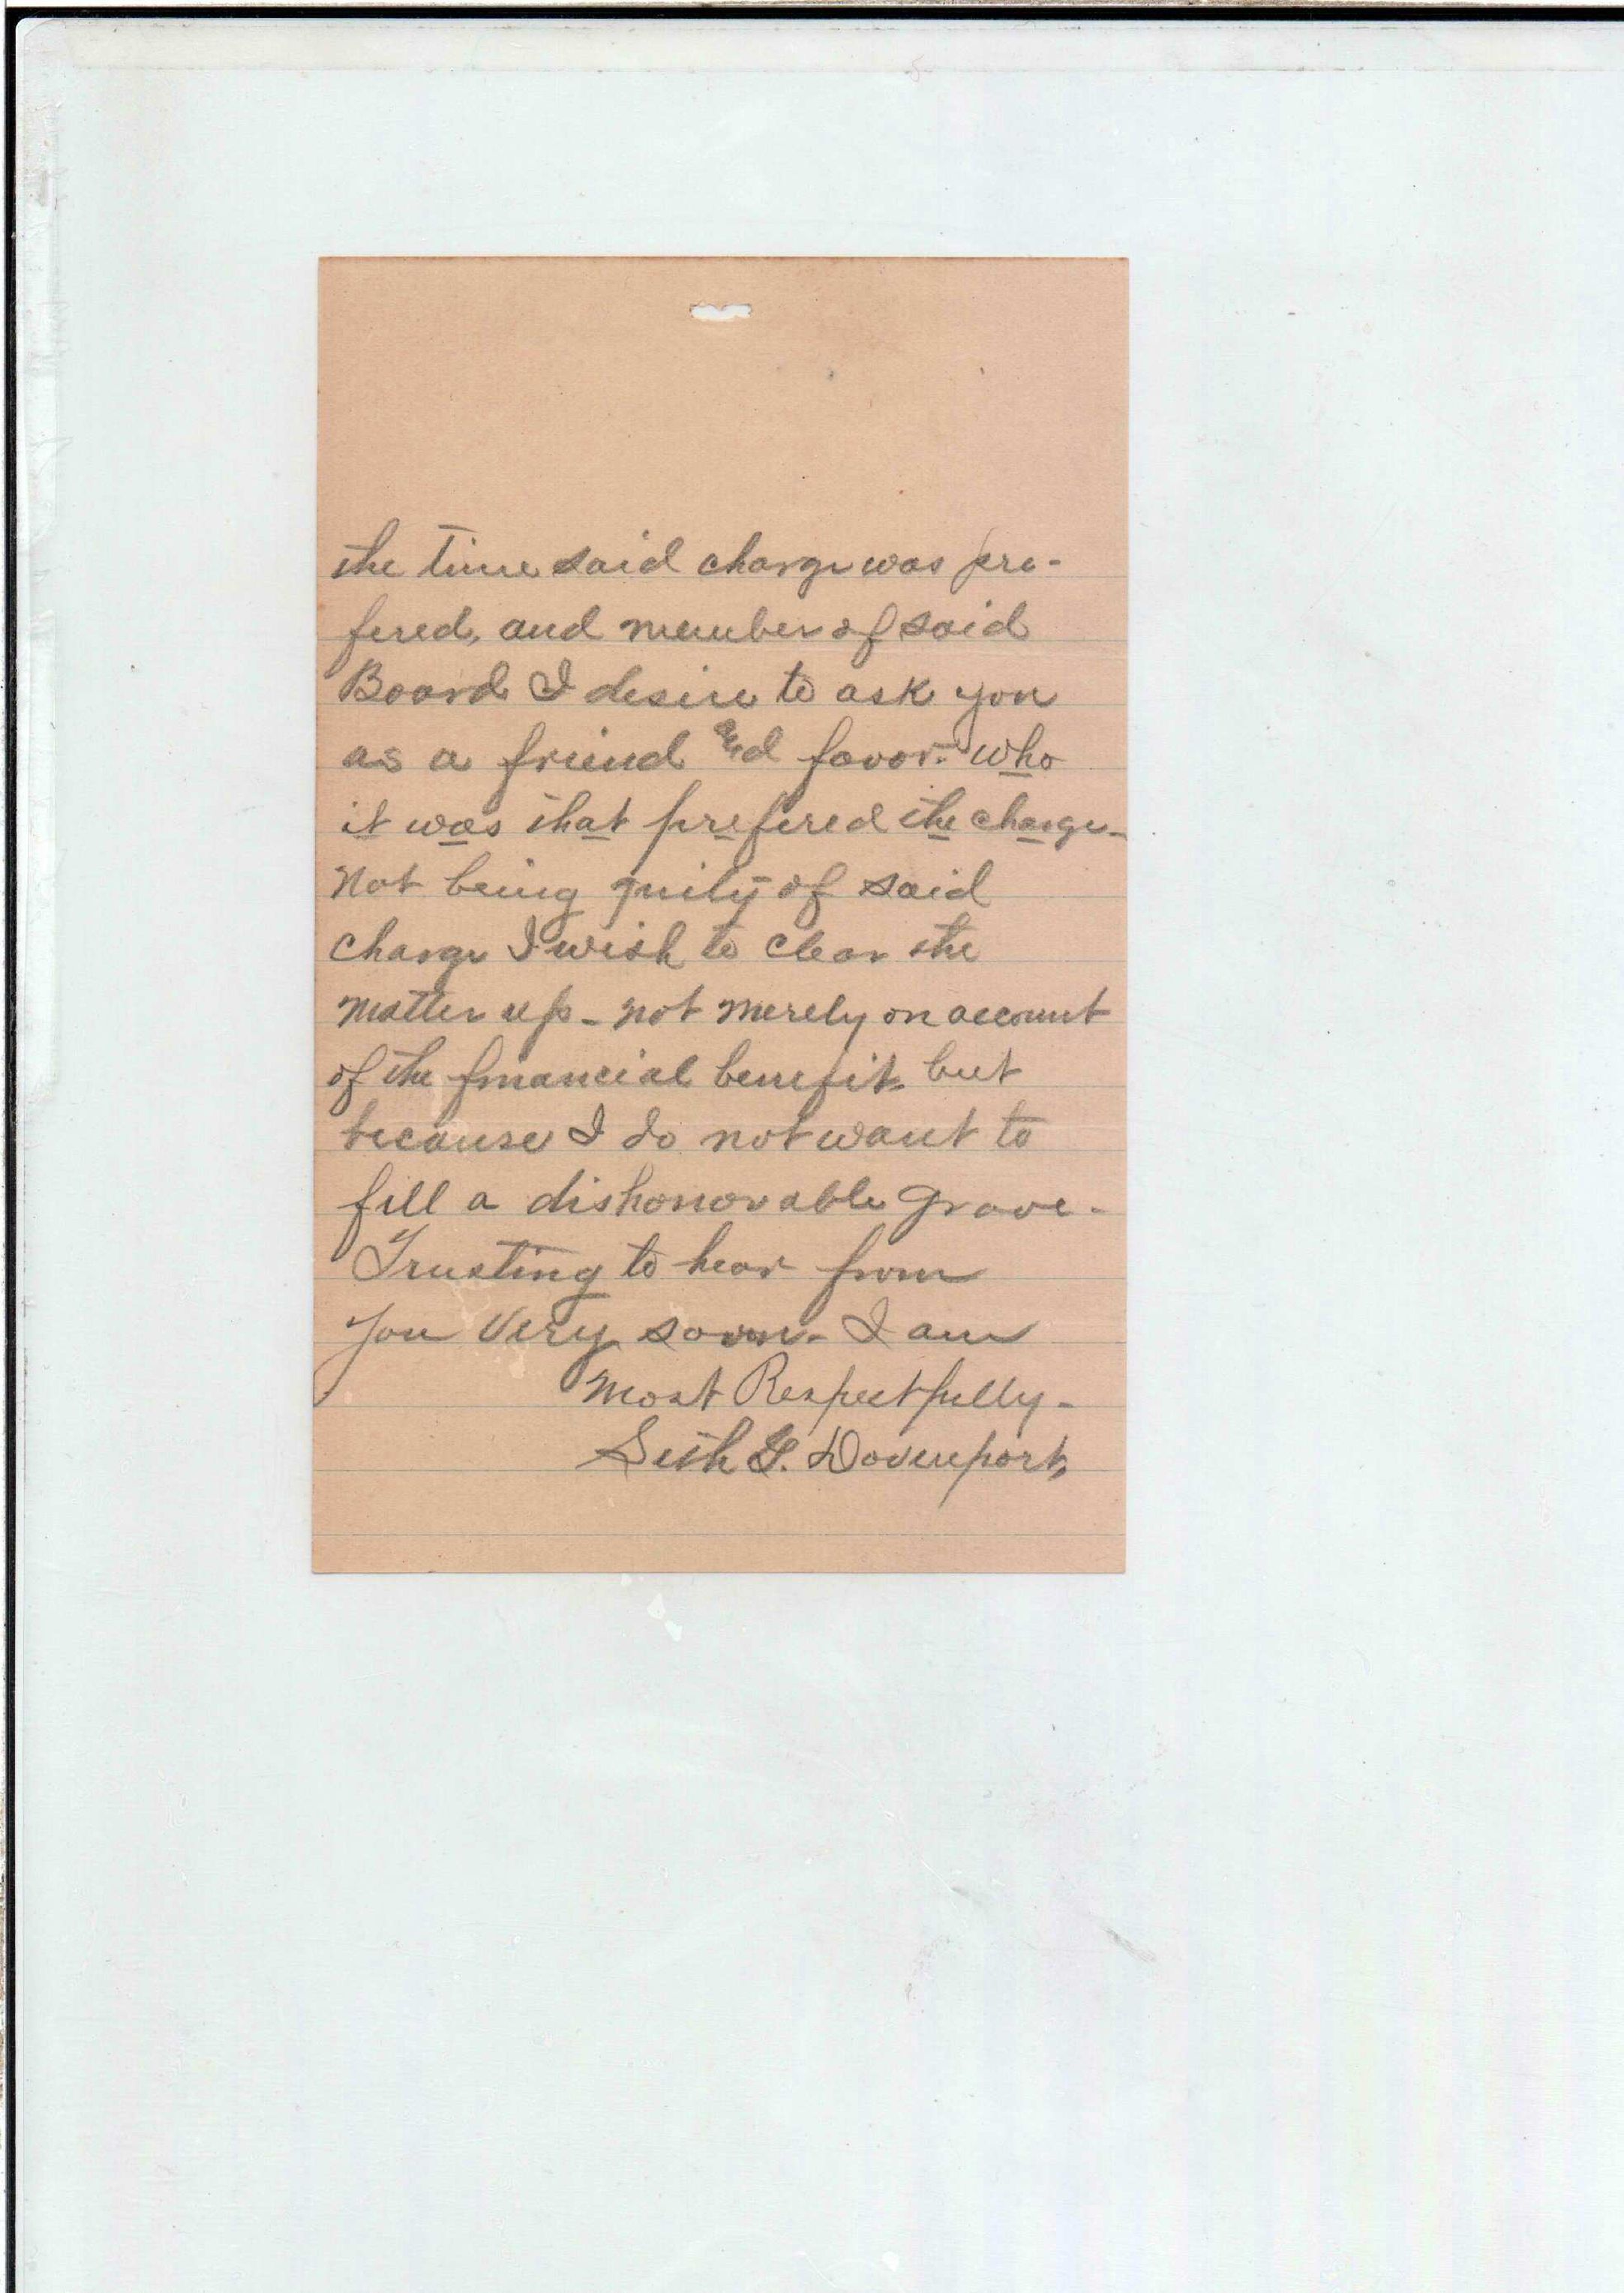 the time said charge was pre-
fered, and member of said
Board I desire to ask you
as a friend and favor. who
it was that prefered the charge-
Not being guilty of said
charge I wish to clear the
matter up - not merely on account
of the financial benefit but
because I do not want to
fill a dishonorable grave -
Trusting to hear from
you very soon - I am
Most Respectfully -
Seth G. Davenport,